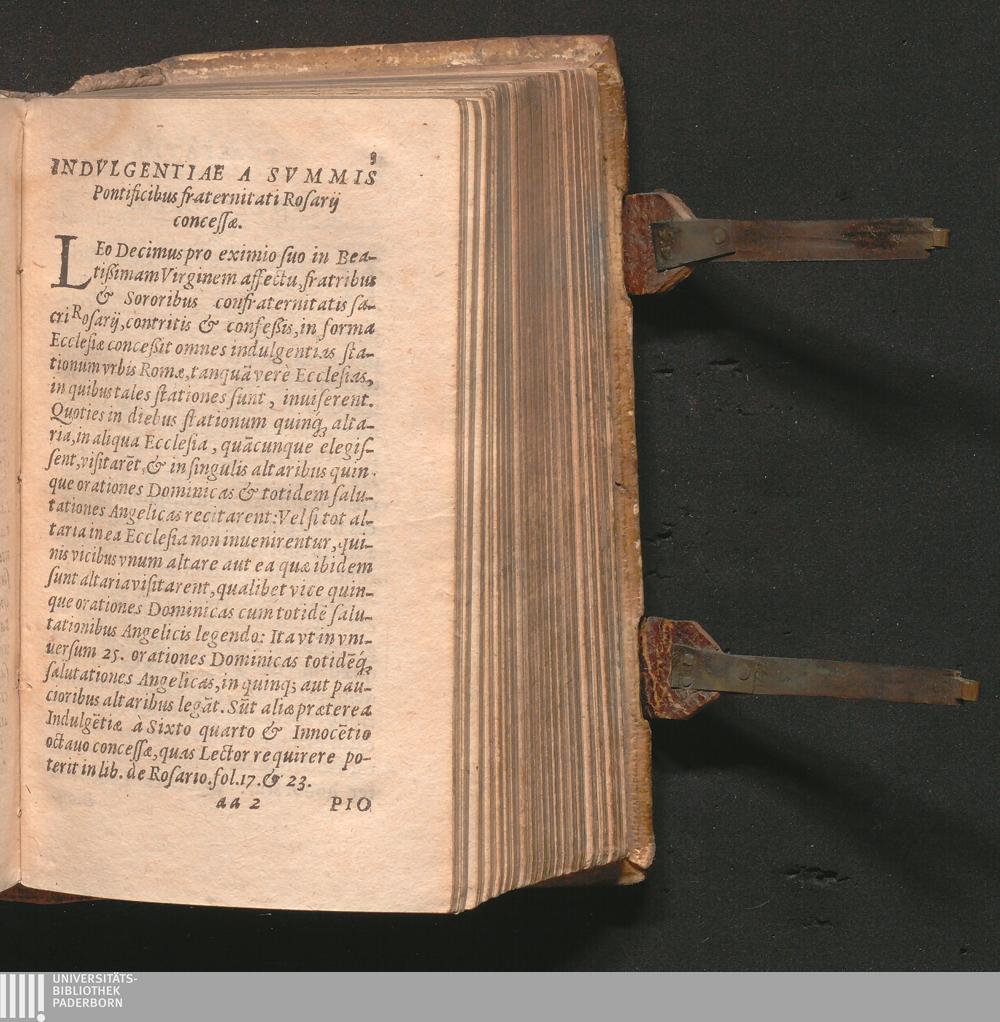 9
INDVLGENTIAE A SVMMIS
Pontificibus fraternitati Roſarij
conceſſæ.
LEo Decimus pro eximio ſuo in Bea-
tiſsimam Virginem affectu, fratribus
& Sororibus confraternitatis ſa-
cri Roſarij, contritis & confeſsis, in forma
Eccleſiæ conceſsit omnes indulgentias ſta-
tionum vrbis Romæ, tanquā verè Eccleſias,
in quibus tales ſtationes ſunt, inuiſerent.
Quoties in diebus ſtationum quinq; alta-
ria, in aliqua Eccleſia, quācunque elegiſ-
ſent, viſitarēt, & in ſingulis altaribus quin-
que orationes Dominicas & totidem ſalu-
tationes Angelicas recitarent: Vel ſi tot al-
taria in ea Eccleſia non inuenirentur, qui-
nis vicibus vnum altare aut ea quæ ibidem
ſunt altaria viſitarent, qualibet vice quin-
que orationes Dominicas cum totidē ſalu-
tationibus Angelicis legendo: Ita vt in vni-
uerſum 25. orationes Dominicas totidēq́;
ſalutationes Angelicas, in quinq; aut pau-
cioribus altaribus legāt. Sūt aliæ præterea
Indulgētiæ à Sixto quarto & Innocētio
octauo conceſſæ, quas Lector requirere po-
terit in lib. de Roſario. fol. 17. & 23.
aa 2 PIO
UNIVERSITÄTS-
BIBLIOTHEK
PADERBORN